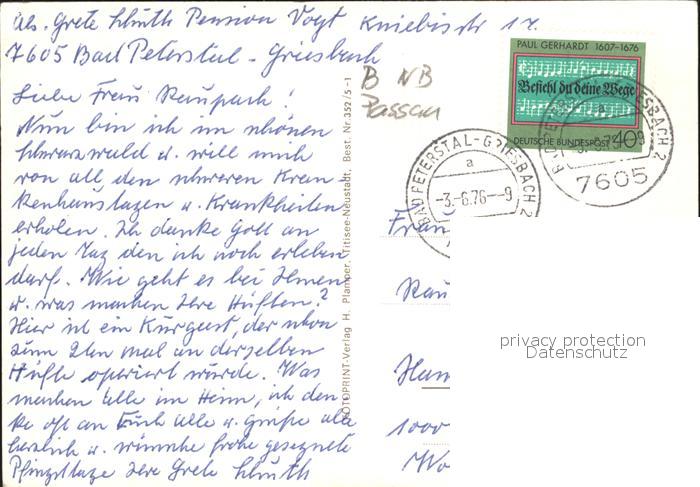 Abs. Grete Schuth Pension Vogt Kniebisstr 17.
7605 Bad Peterstal-Griesbach
B NB
Passau
PAUL GERHARDT 1607-1676
Befiehl du deine Wege
DEUTSCHE BUNDESPOST 40
BAD PETERSTAL-GRIESBACH 2
a
-3.-6.76--9
7605
Liebe Frau Raupach!
Nun bin ich im schönen
Schwarzwald u. will mich
von all den schweren Kran-
kenhaustagen u. Krankheiten
erholen. Ich danke Gott an
jeden Tag den ich noch erleben
darf. Wie geht es bei Ihnen
u. was machen Ihre Hüften?
Hier ist ein Kurgast, der schon
zum 2ten mal an derselben
Hüfte operiert wurde. Was
machen alle im Heim, ich den
ke oft an Euch alle u. grüße alle
herzlich u. wünsche frohe gesegnete
Pfingsttage Ihre Grete Schuth
FOTOPRINT-Verlag H. Plamper, Titisee-Neustadt, Best. Nr. 352/5-1
Frau
Rau
Ham
1000
Wo
privacy protection
Datenschutz